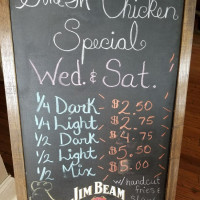 Chicken
Special
Wed. & Sat.
1/4 Dark - $2.50
1/4 Light - $2.75
1/2 Dark - $4.75
1/2 Light - $5.50
1/2 Mix - $5.00
JIM BEAM
w/ handcut
fries &